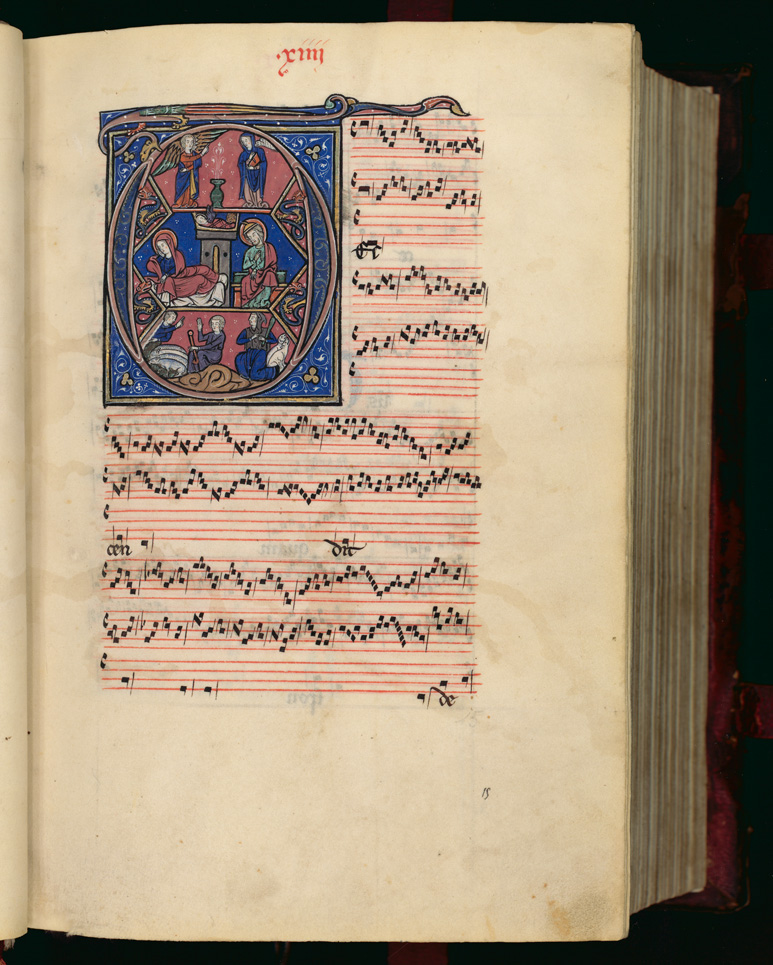 .xiiij
D
ES
cen dit
de
15